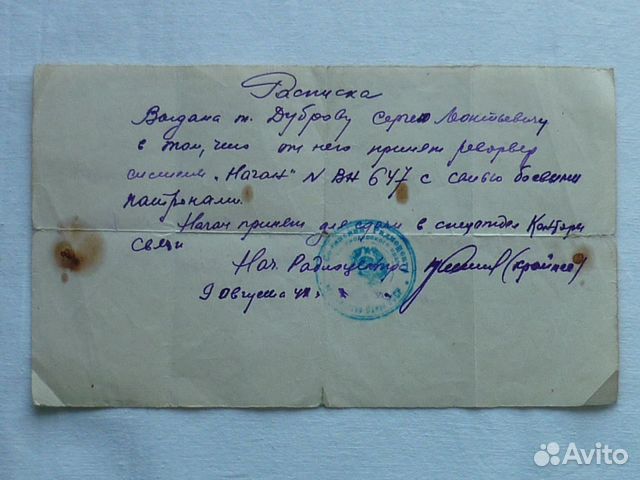 Расписка
Выдана т. Дуброву Сергею Леонтьевичу
в том, что от него принят револьвер
системы „Наган" N ВН 647 с семью боевыми
патронами.
Наган принят для сдачи в спецотдел Конторы
Связи
Нач. Радиоцентра
9 августа
Avito